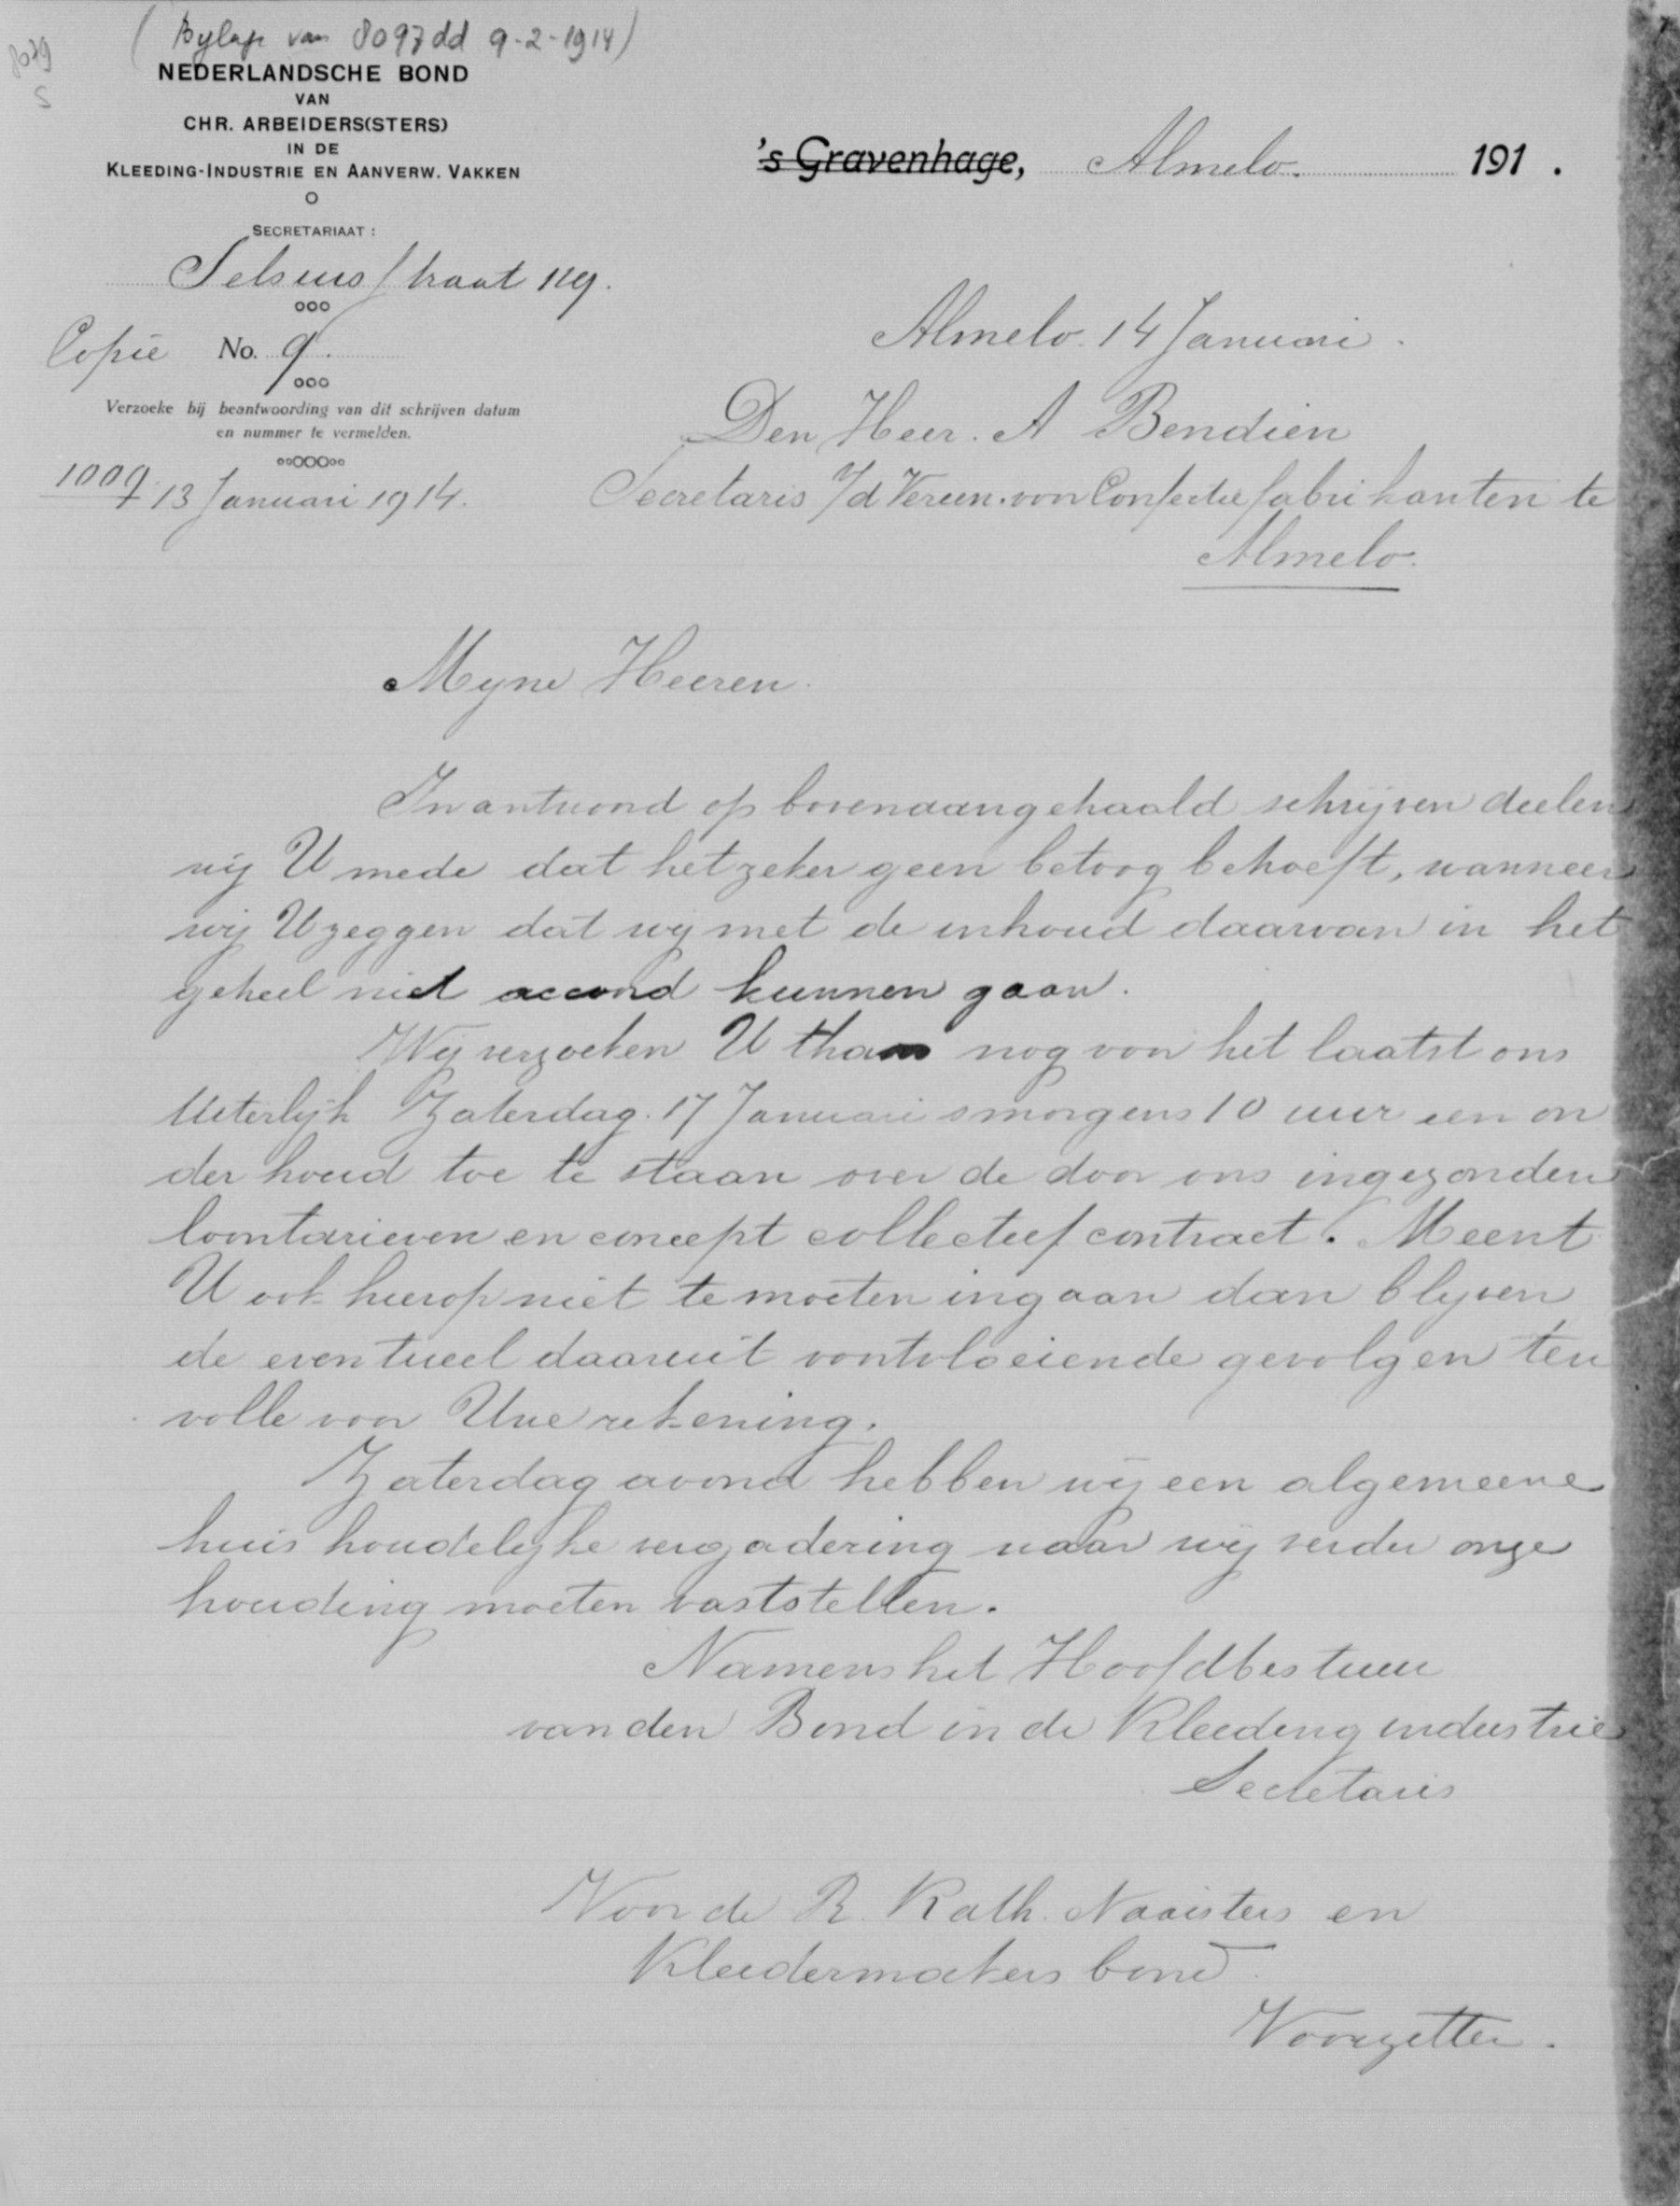 (Bylage van 8097 dd 9-2-1914)
NEDERLANDSCHE BOND
VAN
CHR. ARBEIDERS(STERS)
IN DE
KLEEDING-INDUSTRIE EN AANVERW. VAKKEN
SECRETARIAAT:
straat 119.
Copie No. 9.
Verzoeke bij beantwoording van dit schrijven datum
en nummer te vermelden.
13 Januari 1914.
's Gravenhage, Almelo. 191 .
Almelo. 14 Januari.
Den Heer. A Bendien
Secretaris v/d Vereen. van Confectiefabrikanten te
Almelo.
Myne Heeren.
In antwoord op bovenaangehaald schrijven deelen
wij U mede dat het zeker geen betoog behoeft, wanneer
wij U zeggen dat wij met de inhoud daarvan in het
geheel niet accoord kunnen gaan.
Wij verzoeken U thans nog voor het laatst ons
Uiterlijk Zaterdag. 17 Januari smorgens 10 uur een on
der houd toe te staan over de door ons ingezonden
loontarieven en concept collectief contract. Meent
U ook hierop niet te moeten ingaan dan blyven
de eventueel daaruit voortvloeiende gevolgen ten
volle voor Uwe rekening.
Zaterdag avond hebben wij een algemeene
huishoudelijke vergadering waar wij verder onze
houding moeten vaststellen.
Namens het Hoofdbestuur
van den Bond in de Kleeding industrie
Secretaris
Voor de R. Kath. Naaisters en
Kleedermakers bond
Voorzitter.